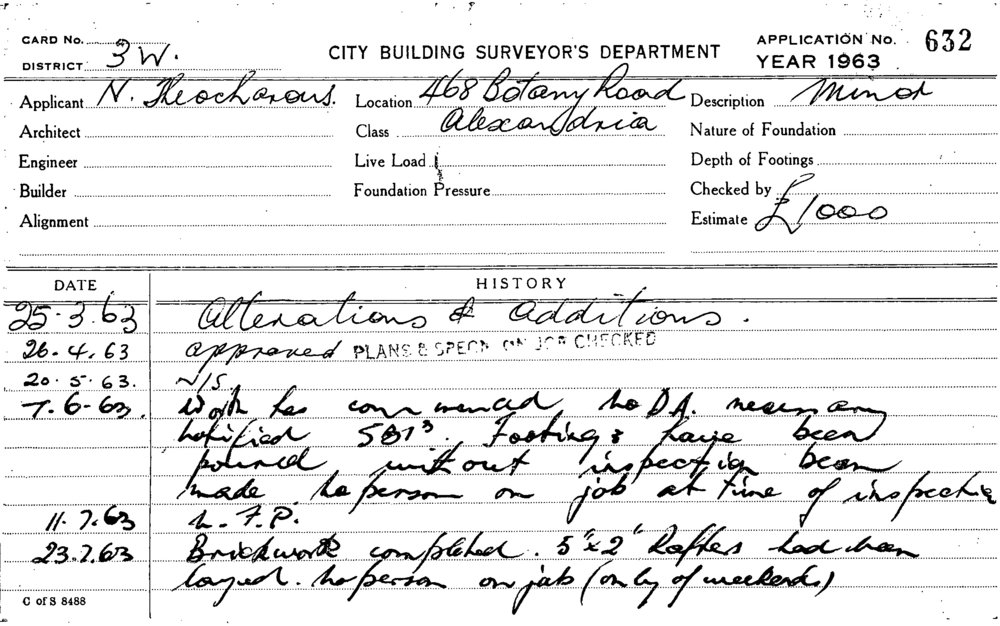 CARD No.
DISTRICT 3 W.
CITY BUILDING SURVEYOR'S DEPARTMENT
APPLICATION No. 632
YEAR 1963
Applicant N. Theocharous.
Location 468 Botany Road
Description Minor
Architect
Class Alexandria
Nature of Foundation
Engineer
Live Load
Depth of Footings
Builder
Foundation Pressure
Checked by
Alignment
Estimate £1000
DATE HISTORY
25.3.63 Alterations & Additions.
26.4.63 approved PLANS & SPECN ON JOB CHECKED
20.5.63. N/S.
7.6-63. Work has commenced, no D.A. necessary
notified SBI3. Footings have been
poured without inspection been
made. no person on job at time of inspection
11.7.63 N.F.P.
23.7.63 Brickwork completed. 5"x2" Rafters had been
layed. no person on job (only of weekends)
C of S 8488